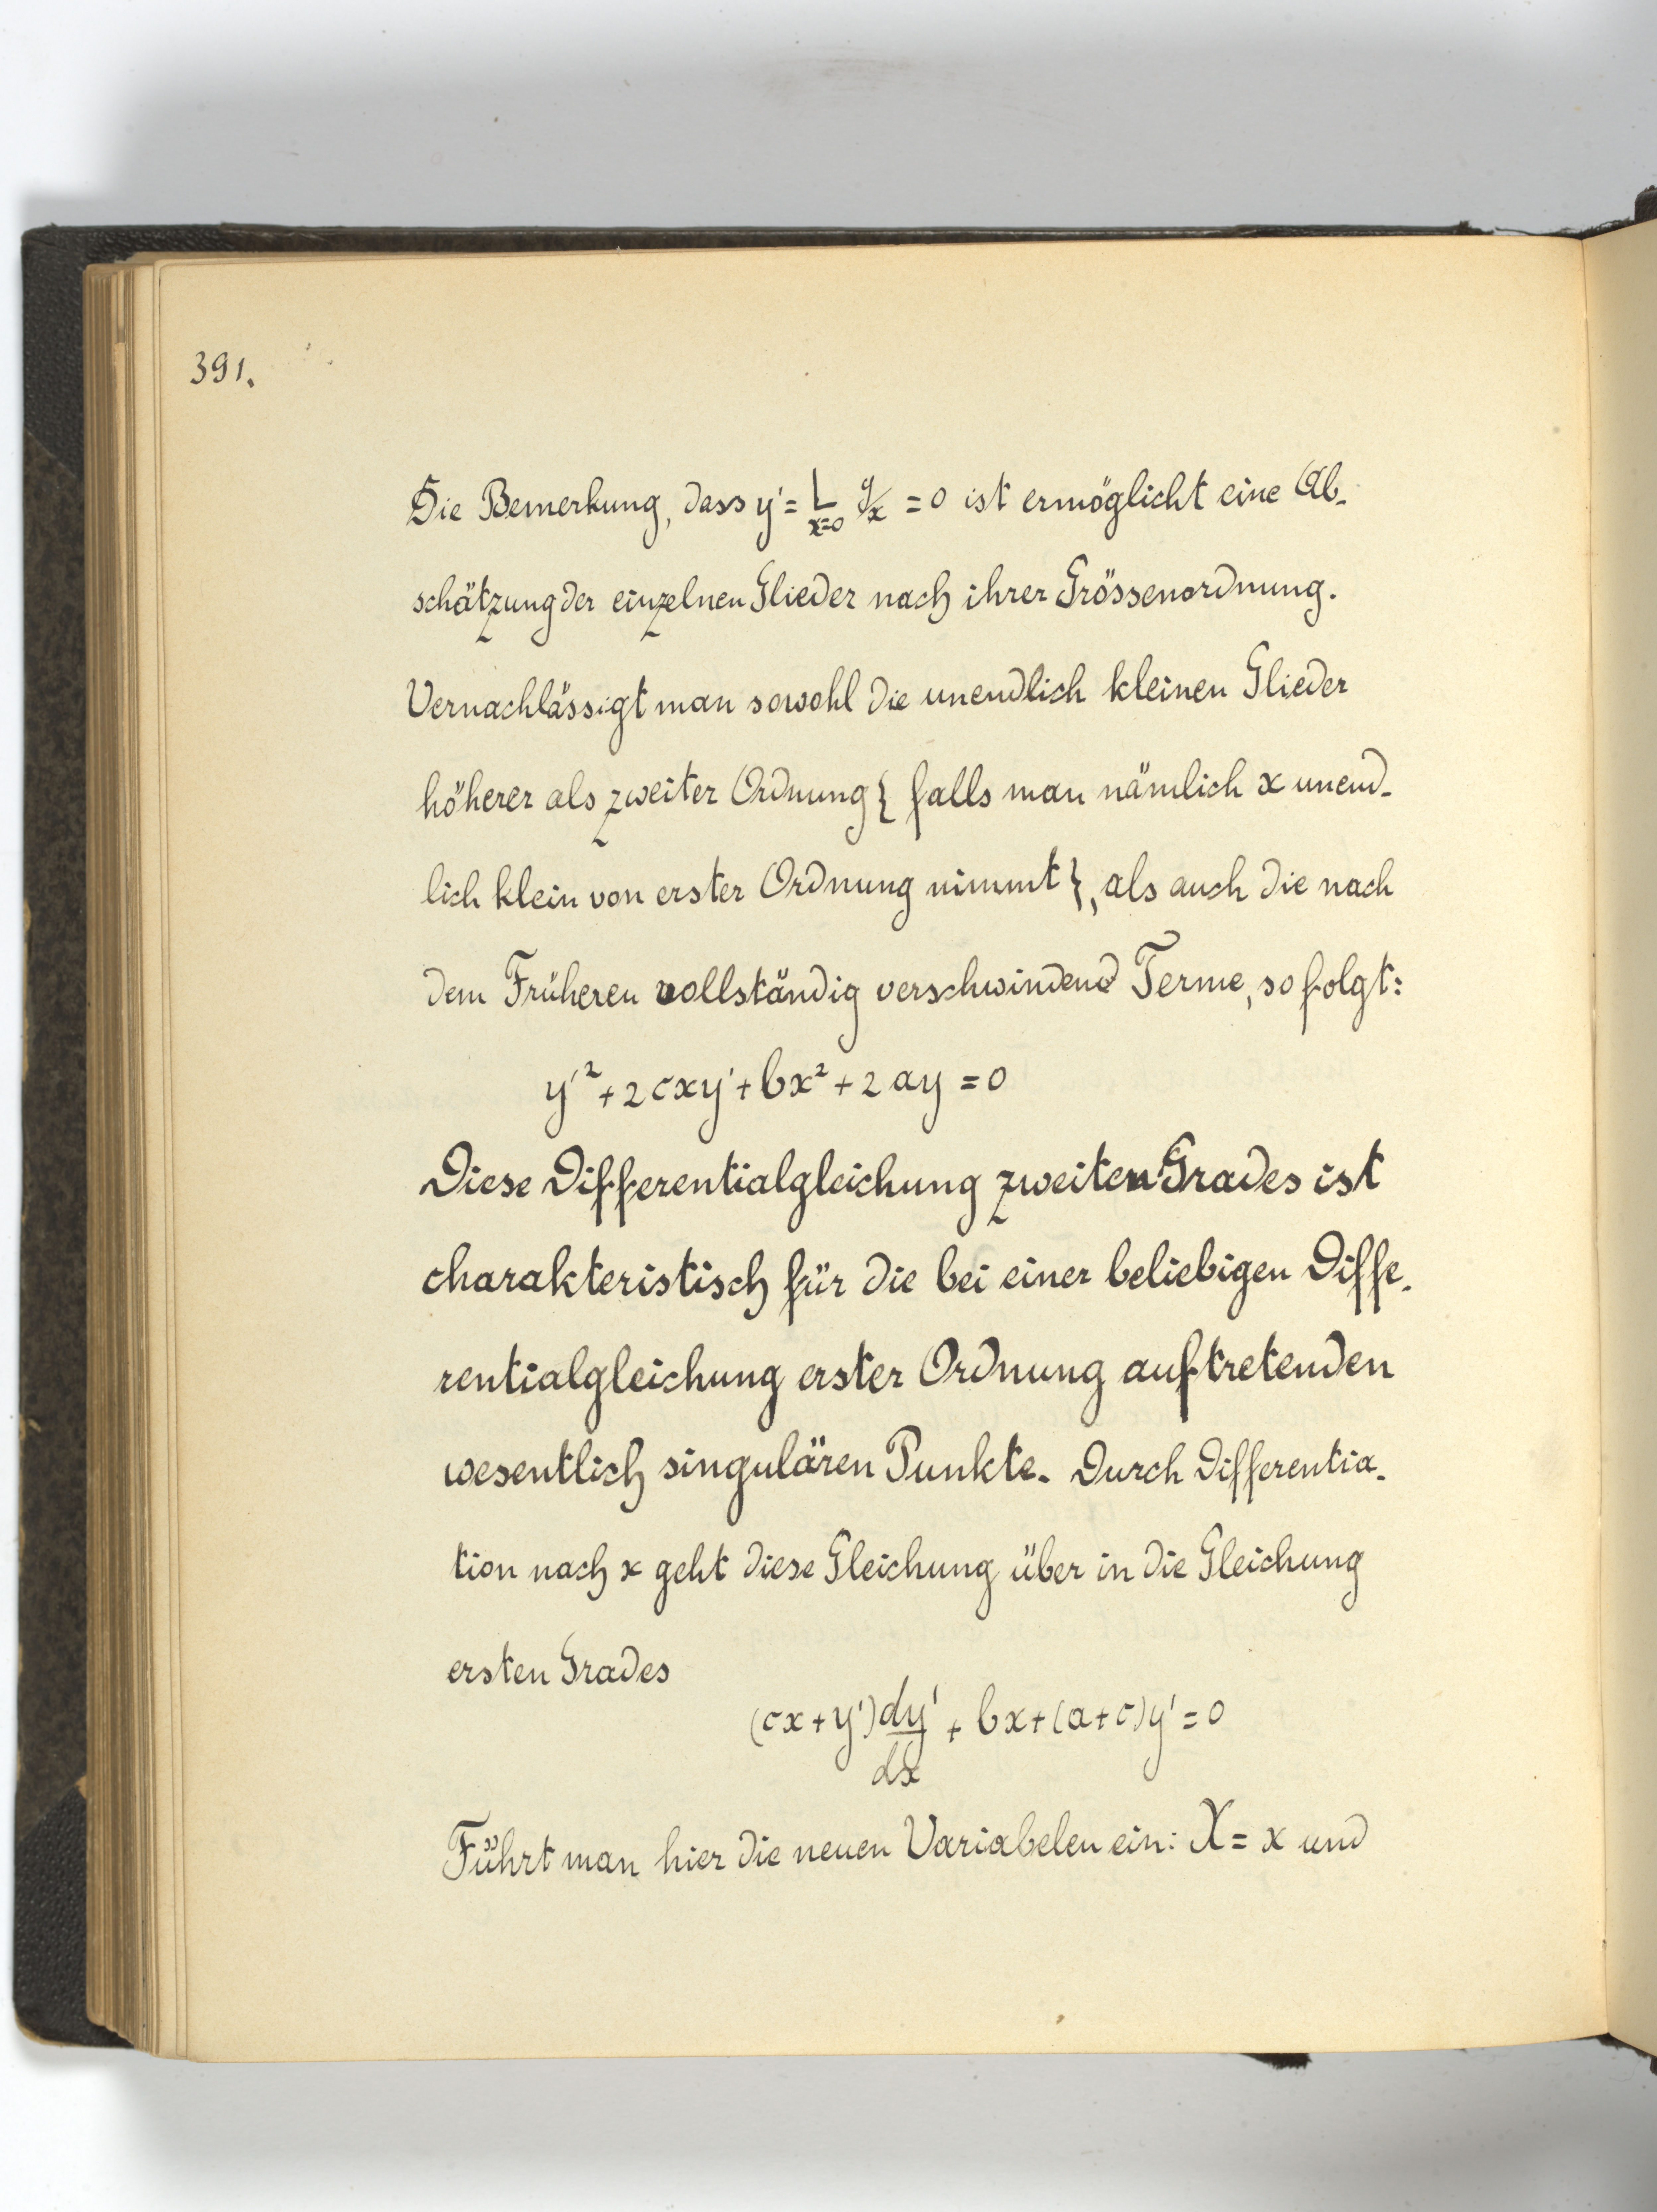 391.
Die Bemerkung, dass y' = L_{x=0} y/x = 0 ist ermöglicht eine Ab-
schätzung der einzelnen Glieder nach ihrer Grössenordnung.
Vernachlässigt man sowohl die unendlich kleinen Glieder
höherer als zweiter Ordnung { falls man nämlich x unend-
lich klein von erster Ordnung nimmt }, als auch die nach
dem Früheren vollständig verschwindend Terme, so folgt:
y'² + 2cxy' + bx² + 2ay = 0
Diese Differentialgleichung zweiten Grades ist
charakteristisch für die bei einer beliebigen Diffe-
rentialgleichung erster Ordnung auftretenden
wesentlich singulären Punkte. Durch Differentia-
tion nach x geht diese Gleichung über in die Gleichung
ersten Grades
(cx + y') dy'/dx + bx + (a + c) y' = 0
Führt man hier die neuen Variabelen ein: X = x und